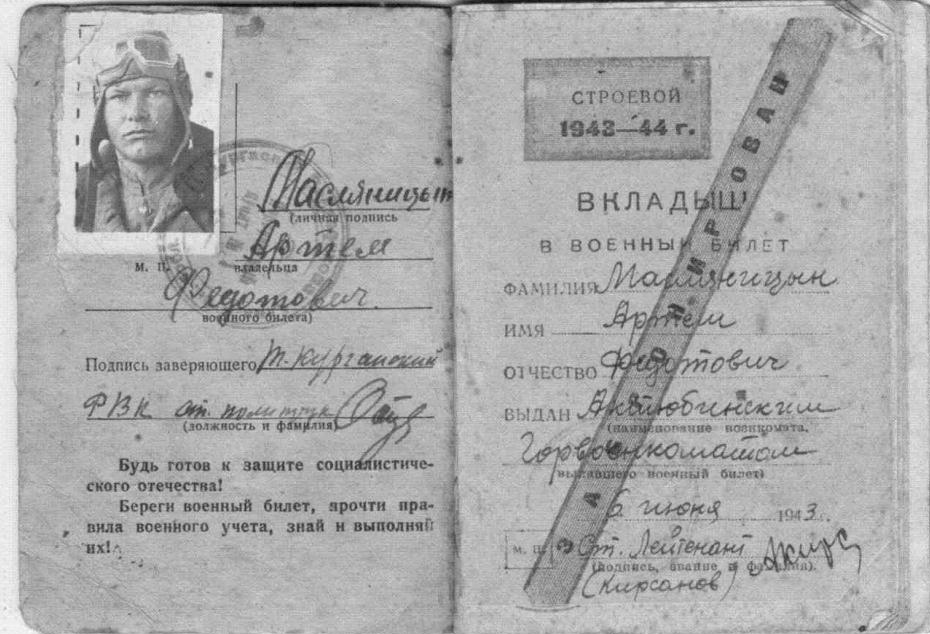 Масляницын
(личная подпись
Артем
м. п. владельца
Федотович
военного билета)
Подпись заверяющего Т. Курганский
РВК ст. политрук
(должность и фамилия)
Будь готов к защите социалистиче-
ского отечества!
Береги военный билет, прочти пра-
вила военного учета, знай и выполняй
их!
СТРОЕВОЙ
1943—44 г.
ВКЛАДЫШ
В ВОЕННЫЙ БИЛЕТ
ФАМИЛИЯ Масляницын
ИМЯ Артем
ОТЧЕСТВО Федотович
ВЫДАН Актюбинским
(наименование военкомата,
Горвоенкоматом
выдавшего военный билет)
6 июня 1943.
м. п. Ст. Лейтенант
(подпись, звание и фамилия).
(Кирсанов)
ЗАБРОНИРОВАН